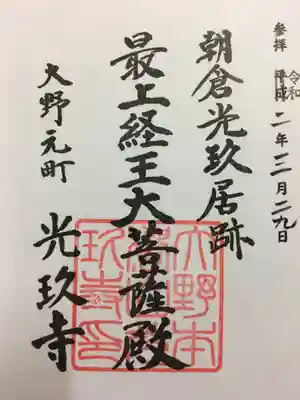 参拝 平成 令和 二年三月二九日
朝倉光玖居跡
最上経王大菩薩殿
大野元町 光玖寺
大野本
玖寺印